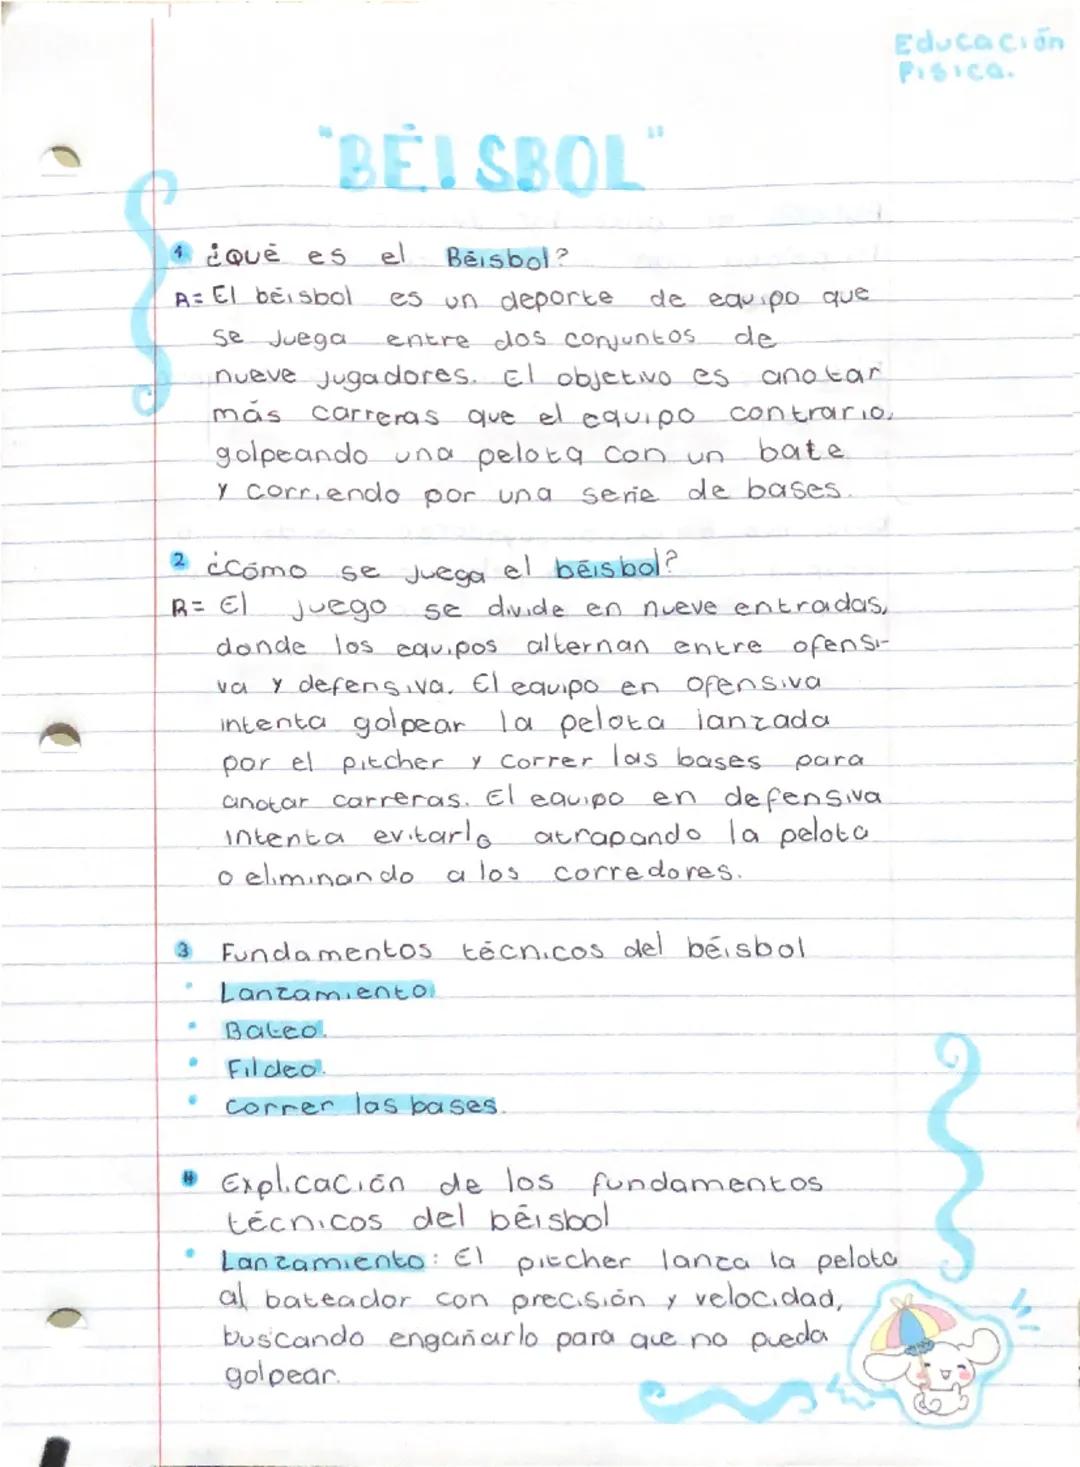 Educación
Física.
"BÉISBOL"
1 ¿Qué es el Béisbol?
R= El béisbol es un deporte de equipo que
se juega entre dos conjuntos de
nueve jugadores. El objetivo es anotar
más carreras que el equipo contrario,
golpeando una pelota con un bate
y corriendo por una serie de bases.
2 ¿Cómo se juega el béisbol?
R= El juego se divide en nueve entradas,
donde los equipos alternan entre ofensi-
va y defensiva. El equipo en ofensiva
intenta golpear la pelota lanzada
por el pitcher y correr las bases para
anotar carreras. El equipo en defensiva
intenta evitarlo atrapando la pelota
o eliminando a los corredores.
3 Fundamentos técnicos del béisbol
• Lanzamiento.
• Bateo.
• Fildeo.
• Correr las bases.
4 Explicación de los fundamentos
técnicos del béisbol
• Lanzamiento: El pitcher lanza la pelota
al bateador con precisión y velocidad,
buscando engañarlo para que no pueda
golpear.